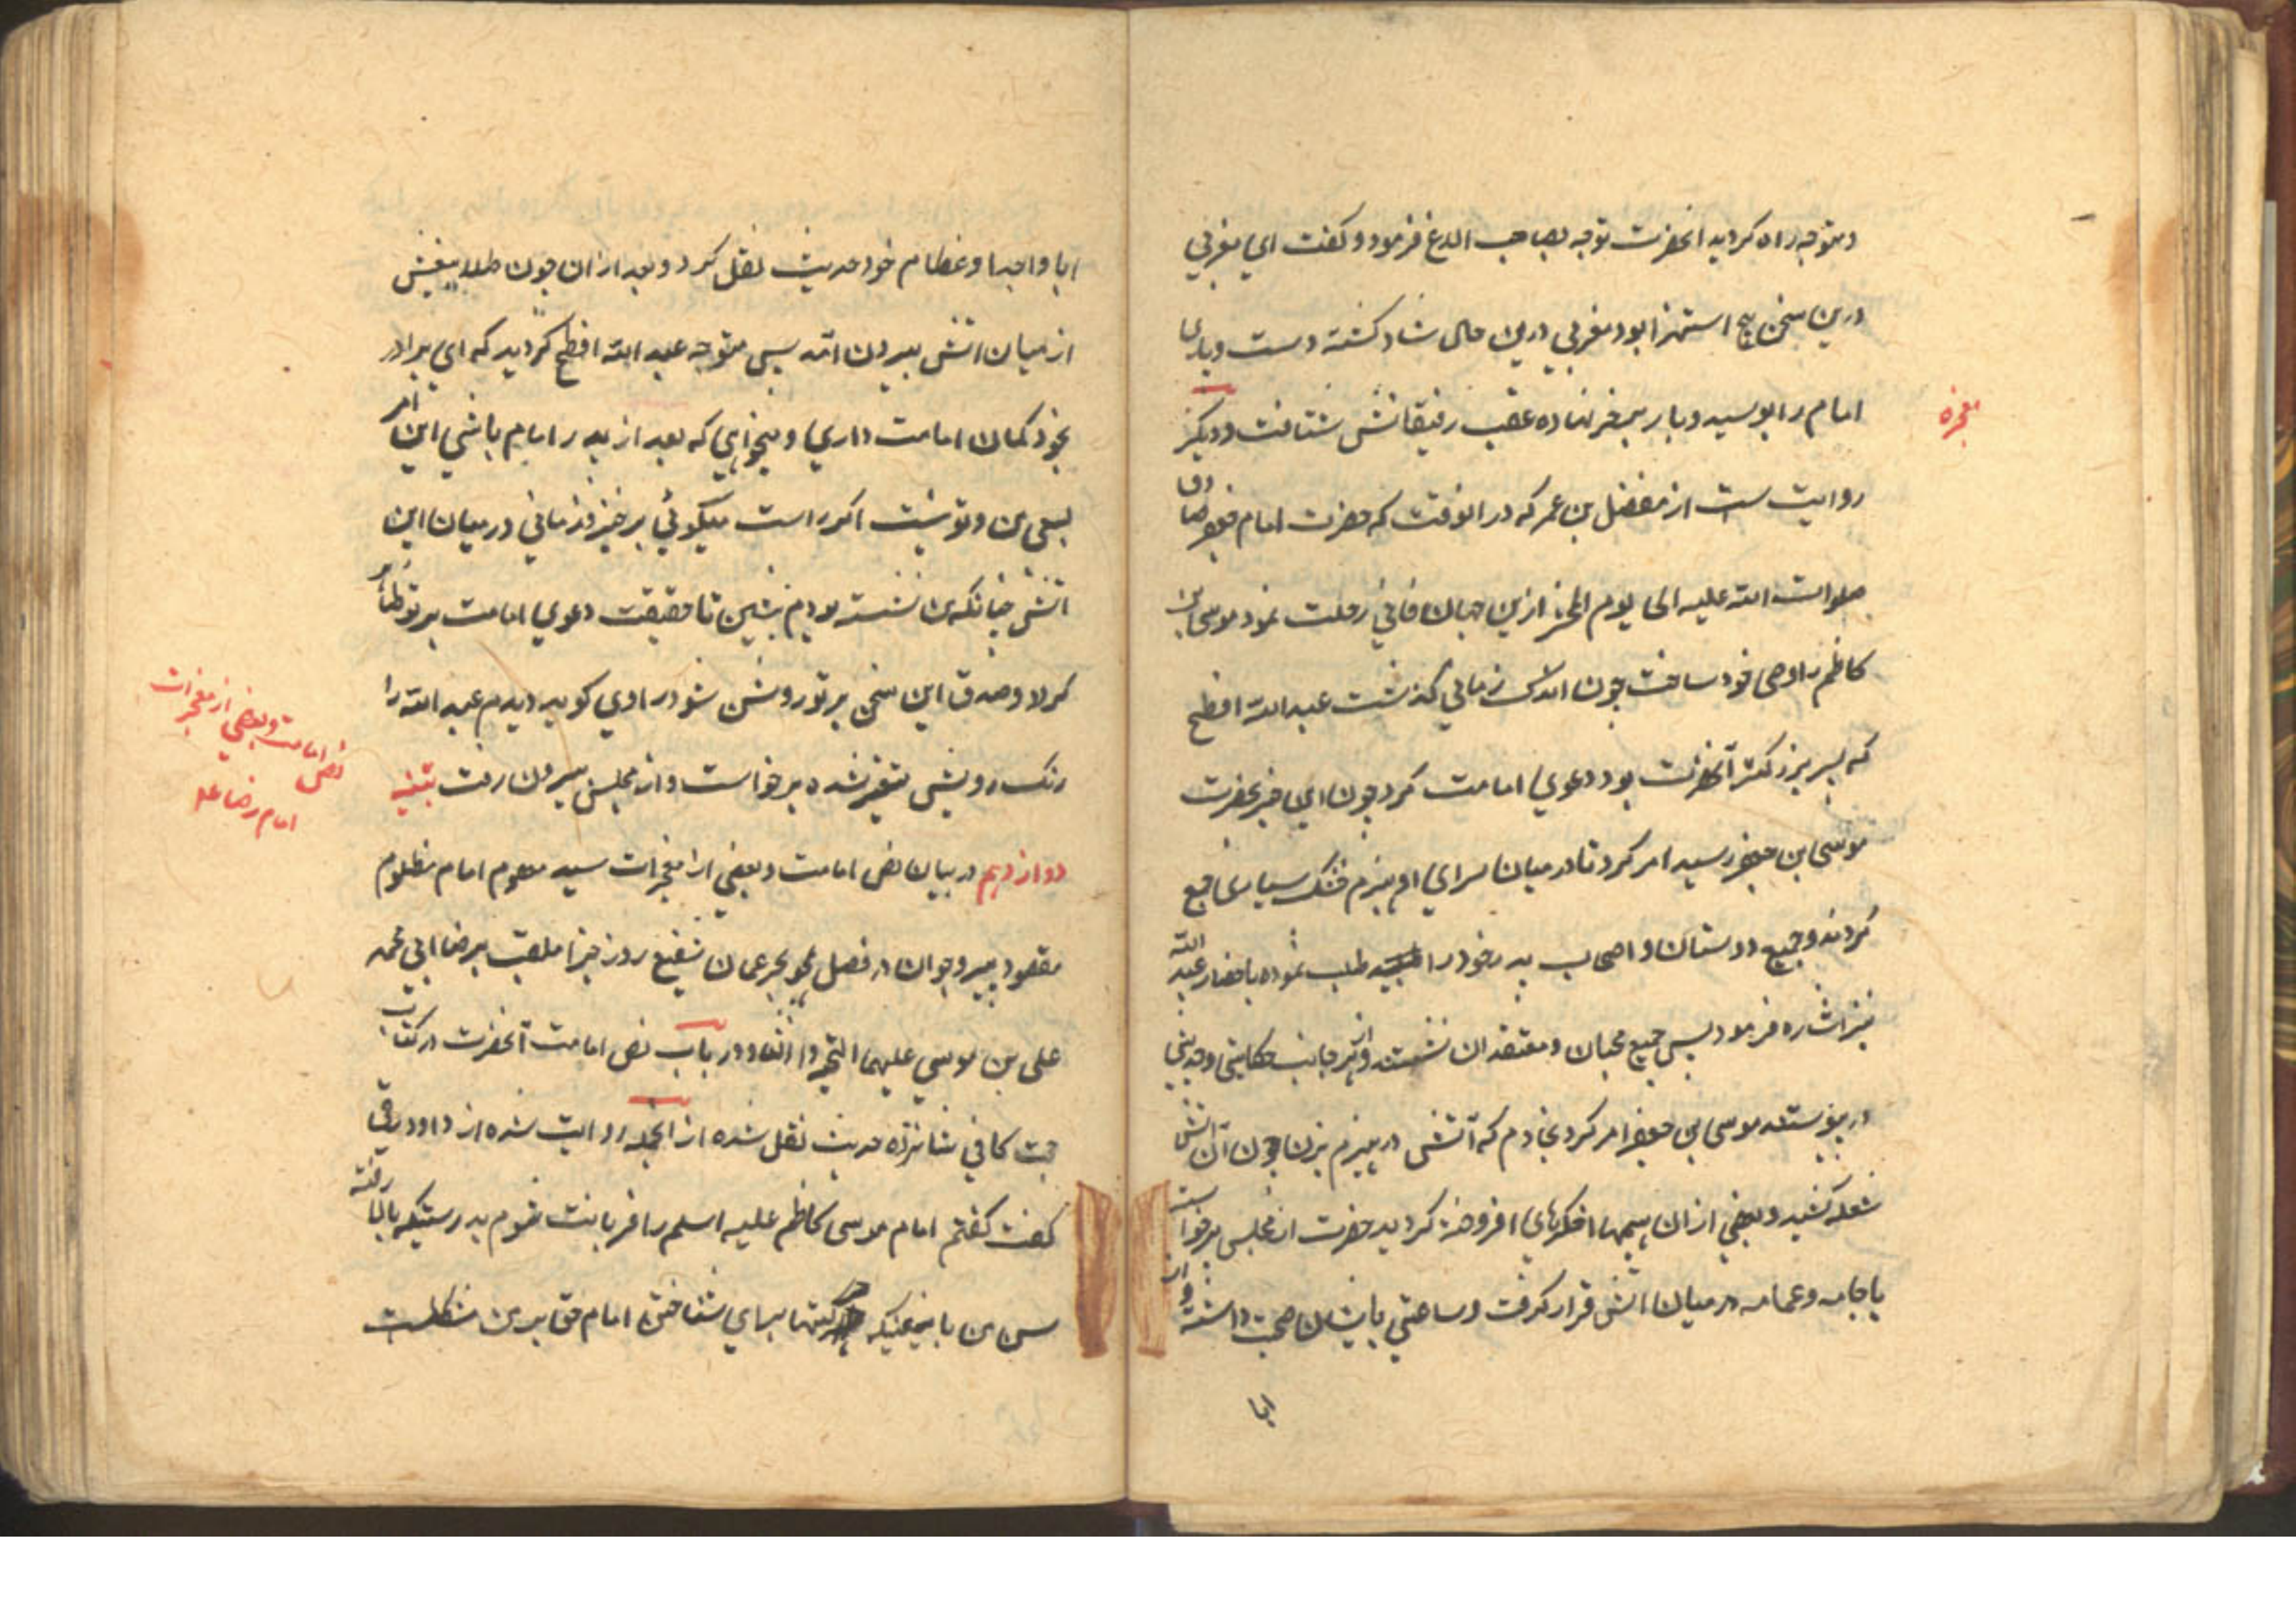 و متوجه راه کردید انحضرت توجه بصاحب الدغ فرمود و کفت ای مغربی
درین سخن هیچ استهزا بود مغربی درین حال شاد کشته دست و پای
امام را بوسید و بار بر خر نهاده عقب رفیقانش شتافت و دیکر
معجزه
روایت ست از مفضل بن عمر که در انوقت که حضرت امام جعفر صادق
صلوات الله علیه الی یوم ازین جهان فانی رحلت نمود موسی بن
کاظم را وصی خود ساخت چون اندک زمانی کذشت عبد الله افطح
که پسر بزرکتر آنحضرت بود دعوی امامت کرد چون این خبر بحضرت
موسی ابن جعفر رسید امر کرد تا در میان سرای او هیزم خشک بسیاری جمع
کردند و جمیع دوستان و اصحاب پدر خود را طلب نموده باحضار عبد الله
نیز اشاره فرمود پس جمیع محبان و معتقدان نشستند و از هر جانب حکایتی و حدیثی
در پیوستند موسی بن جعفر امر کرد بخادم که آتش در هیزم بزن چون آن اتش
شعله کشید و بعضی از ان هیمها اخکرهای افروخته کردید حضرت از مجلس برخواست
با جامه و عمامه در میان اتش قرار کرفت و ساعتی با یشان صحبت داشته و از
ابا
ابا و اجداد عظام خود حدیث نقل کرد و بعد از ان چون طلای بیغش
از میان اتش بیرون امد پس متوجه عبد الله افطح کردید که ای برادر
بخود کمان امامت داری و میخواهی که بعد از پدر امام باشی این امر
بسعی من و تو نیست اکر راست میکوئی برخیز و زمانی در میان این
اتش چنانکه من نشسته بودم بنشین تا حقیقت دعوی امامت بر تو ظاهر
کردد و صدق این سخن بر تو روشن شود راوی کوید دیدم عبد الله را
رنک رویش متغیر شده برخواست و از مجلس بیرون رفت
نص امامت و بعضی از معجزات
امام رضا ع
دوازدهم در بیان نص امامت و بعضی از معجزات سید معصوم امام مظلوم
مقصود پیر و جوان در فصل بحر عمان شفیع روز جزا ملقب برضا ابی محمد
علی بن موسی علیهما التحیة و الثناء و در باب نص امامت آنحضرت در کتاب
حجت کافی شانزده حدیث نقل شده از انجمله روایت شده از داود رقی
کفت کفتم امام موسی کاظم علیه السلم را فربانت شوم بدرستیکه بالا رفته
سن من یا بمعنیکه برای شناختن امام حق بر من مشکلست